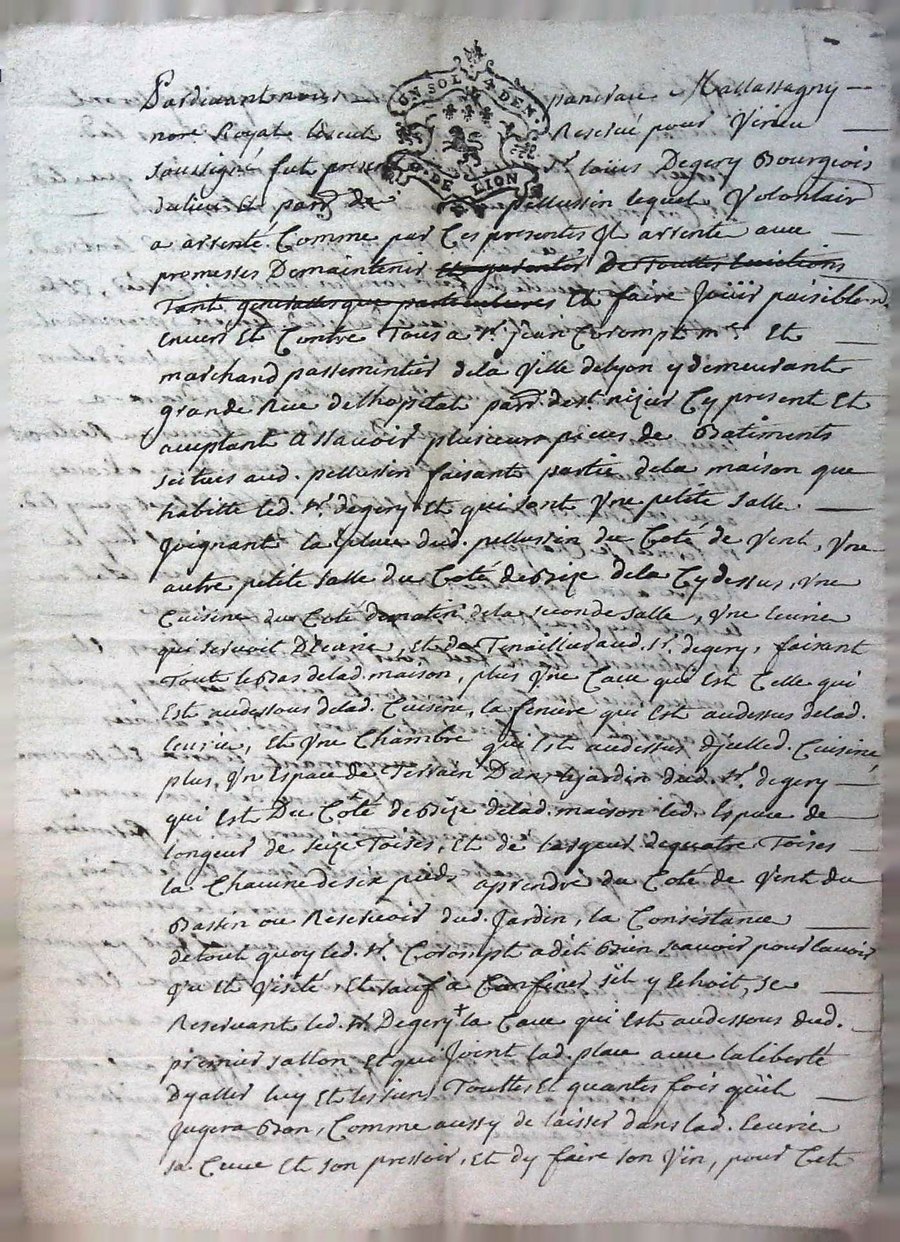 UN SOL 4 DEN.
G. DE LION
Pardevant nous pancrace Mallassagny
nore. Royal Reservé pour Virieu
soussigné fut present Sr. loüis Degery Bourgeois
dulieu Et parr. de pellussin lequel Volontair
a arrenté Comme par Ces presentes Jl arrente avec
premesses Demaintenir Et garentir De Touttes Evictions
Tant generalles que particulieres Et faire Joüir paisiblem.
Envers Et Contre Tous a Sr. jean Corompt me. Et
marchand passementier dela Ville delyon y demeurant
grande Rue delhopital parr. de st. nizier Cy present Et
aceptant Assavoir plusieurs pieces de Batiments
scitues aud. pellussin faisant partie dela maison que
habitte led. Sr. degery Et qui sont Vne petite Salle
Joignant la place dud. pellussin du Coté de Vent, Vne
autre petite Salle du Coté de Bize dela Cydessus, Vne
Cuisine du Coté dematin dela seconde Salle, Vne Ecurie
qui servoit D'Ecurie, Et de Tenaillier aud. Sr. degery, faisant
Tout le Bas delad. maison, plus Vne Cave qui Est Celle qui
Est audessous delad. Cuisine, la feniere qui Est audessus delad.
Ecurie, Et Vne Chambre qui Est audessus d'jcelled. Cuisine
plus, Vn Espace de Terrain Dans lejardin dud. Sr. degery
qui Est Du Coté de Bize delad. maison led. Espace de
longeur de seize Toises, Et de largeur dequatre Toises
la Chacune de six pieds aprendre du Coté de Vent du
Bassin ou Reservoir dud. Jardin, la Consistance
detout quoy led. Sr. Corompt a dit Bien scavoir pour lavoir
vu Et Visité, Et sauf a Confiner s'il y Echoit, se
Reservant led. Sr. Degery + la Cave qui Est audessous dud.
premier sallon Et qui Joint lad. place avec la liberté
dyaller luy Et les siens Touttes Et quantes fois qu'il
Jugera Bon, Comme aussy de laisser dans lad. Ecurie
sa Cuve Et son pressoir, Et dy faire son Vin, pour Cet